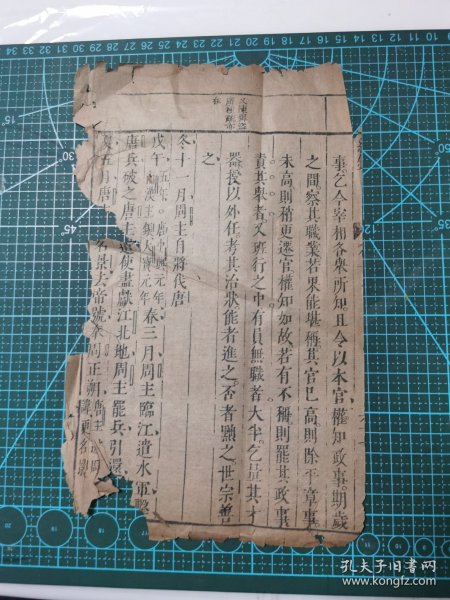 事乞令宰相各舉所知且令以本官權知政事期歲
之間察其職業若果能堪稱其官已高則除平章事
未高則稍更遷官權知如故若有不稱則罷其政事
責其舉者又班行之中有員無職者大半乞量其才
器授以外任考其治狀能者進之否者黜之世宗善
之
冬十一月周主自將伐唐
戊午
五年
南漢主鋹大寶元年
春三月周主臨江遣水軍擊
唐兵破之唐主遣使盡獻江北地周主罷兵引還
夏五月唐
名景去帝號奉周正朔
更名景
孔夫子旧书网
www.kongfz.com